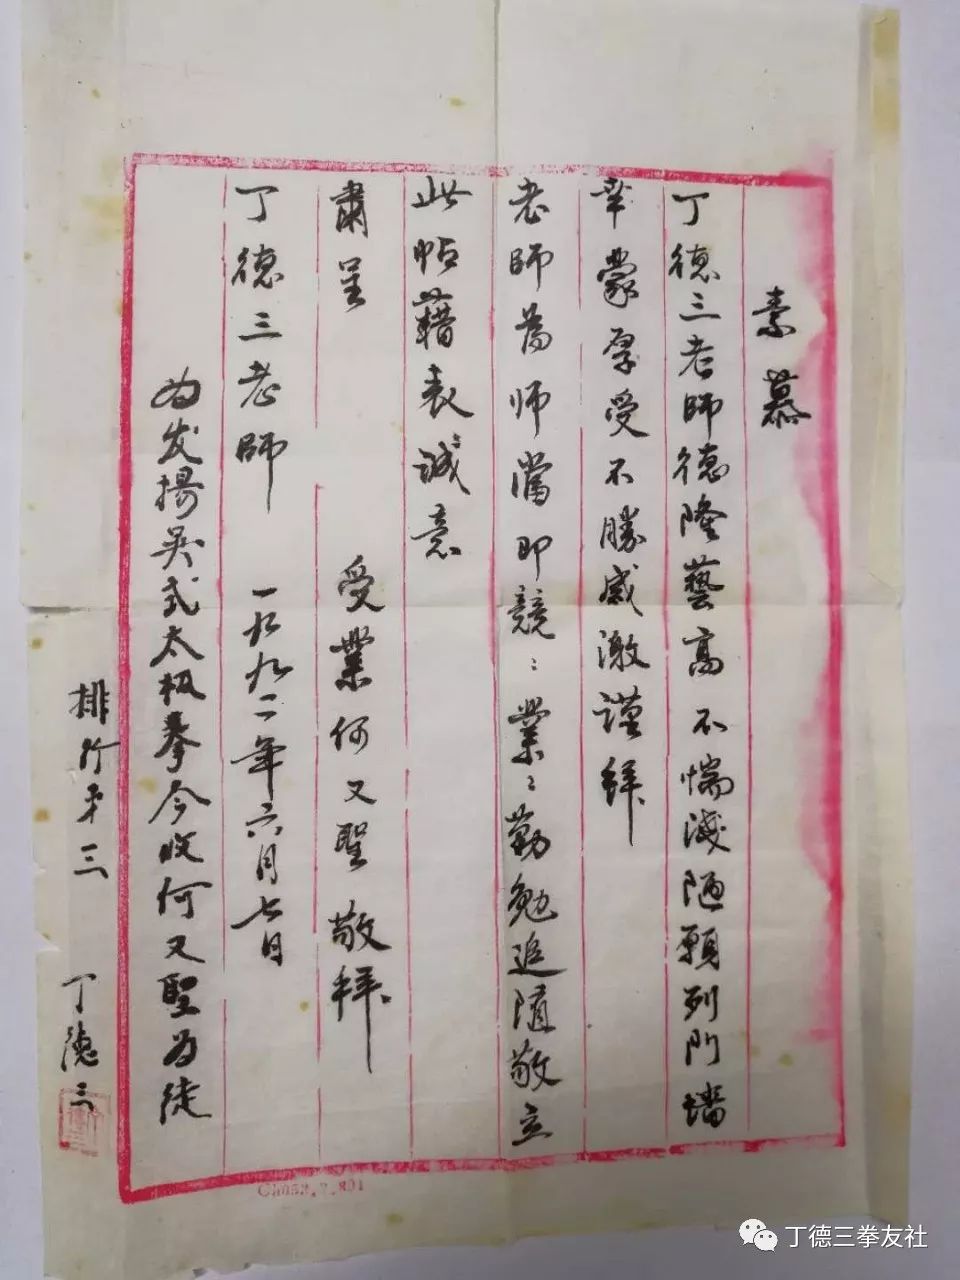 素慕
丁德三老師德隆藝高不惴淺陋願列門墻
幸蒙厚受不勝感激謹拜
老師为师當即競〻業〻勤勉追隨敬立
此帖藉表誠意
肅呈 受業何又聖敬拜
丁德三老師 一九九二年六月七日
为发揚吴式太极拳今收何又聖为徒
排行第三 丁德三
Ch052.7.801
丁德三拳友社